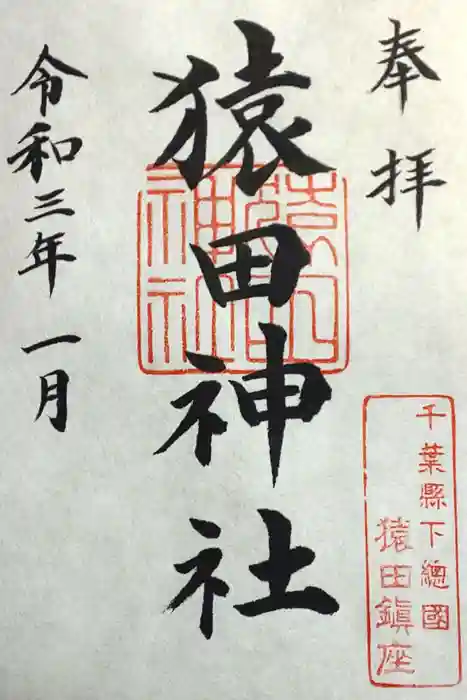 奉拝
猿田神社
猿田神社
千葉縣下總國
猿田鎮座
令和三年一月